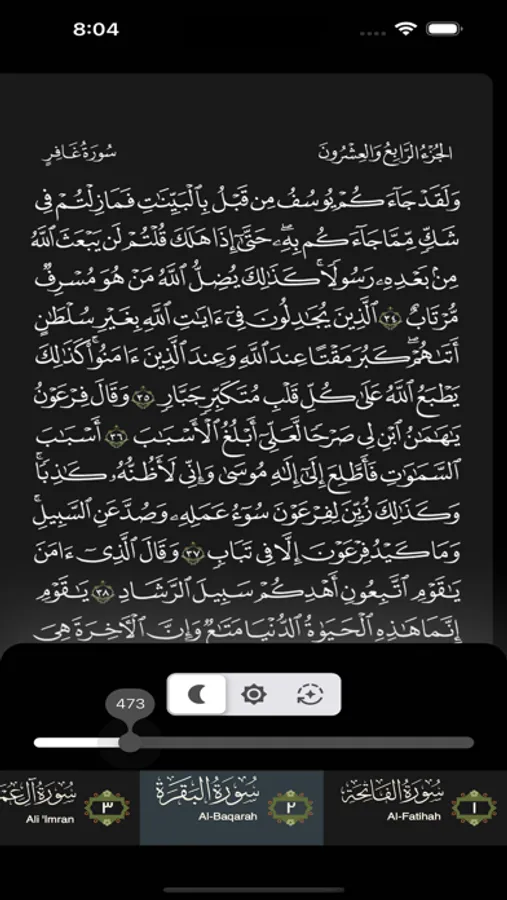 8:04
الجُزْءُ الرَّابِعُ وَالعِشْرُونَ
سُورَةُ غَافِرٍ
وَلَقَدْ جَآءَكُمْ يُوسُفُ مِن قَبْلُ بِالْبَيِّنَٰتِ فَمَا زِلْتُمْ فِى
شَكٍّ مِّمَّا جَآءَكُم بِهِۦ حَتَّىٰٓ إِذَا هَلَكَ قُلْتُمْ لَن يَبْعَثَ اللَّهُ
مِنۢ بَعْدِهِۦ رَسُولًا كَذَٰلِكَ يُضِلُّ اللَّهُ مَنْ هُوَ مُسْرِفٌ
مُّرْتَابٌ ٣٤ الَّذِينَ يُجَٰدِلُونَ فِىٓ ءَايَٰتِ اللَّهِ بِغَيْرِ سُلْطَٰنٍ
أَتَىٰهُمْ كَبُرَ مَقْتًا عِندَ اللَّهِ وَعِندَ الَّذِينَ ءَامَنُوا كَذَٰلِكَ
يَطْبَعُ اللَّهُ عَلَىٰ كُلِّ قَلْبِ مُتَكَبِّرٍ جَبَّارٍ ٣٥ وَقَالَ فِرْعَوْنُ
يَٰهَٰمَٰنُ ابْنِ لِى صَرْحًا لَّعَلِّىٓ أَبْلُغُ الْأَسْبَٰبَ ٣٦ أَسْبَٰبَ
السَّمَٰوَٰتِ فَأَطَّلِعَ إِلَىٰٓ إِلَٰهِ مُوسَىٰ وَإِنِّى لَأَظُنُّهُۥ كَٰذِبًا
وَكَذَٰلِكَ زُيِّنَ لِفِرْعَوْنَ سُوٓءُ عَمَلِهِۦ وَصُدَّ عَنِ السَّبِيلِ
وَمَا كَيْدُ فِرْعَوْنَ إِلَّا فِى تَبَابٍ ٣٧ وَقَالَ الَّذِىٓ ءَامَنَ
يَٰقَوْمِ اتَّبِعُونِ أَهْدِكُمْ سَبِيلَ الرَّشَادِ ٣٨ يَٰقَوْمِ
إِنَّمَا هَٰذِهِ الْحَيَوٰةُ الدُّنْيَا مَتَٰعٌ وَإِنَّ الْءَاخِرَةَ هِىَ
473
سُورَةُ الفَاتِحَةِ ١
Al-Fatihah
سُورَةُ البَقَرَةِ ٢
Al-Baqarah
سُورَةُ آل عِمْ ٣
Ali 'Imran